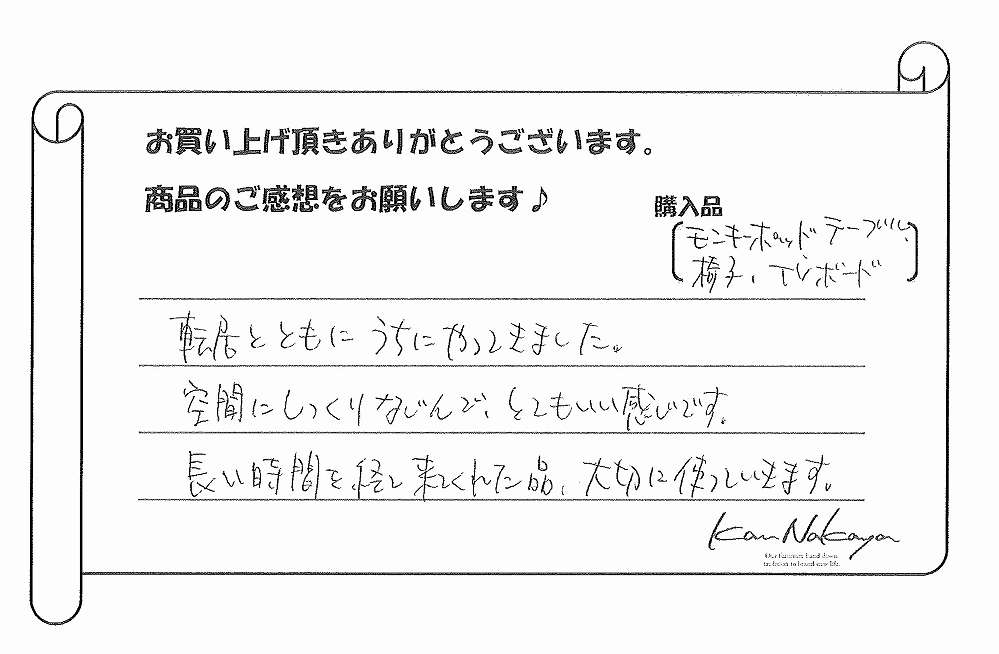 お買い上げ頂きありがとうございます。
商品のご感想をお願いします♪
購入品
モンキーポッドテーブル、
椅子、TVボード
転居とともにうちにやってきました。
空間にしっくりなじんで、とてもいい感じです。
長い時間を経て来てくれた品、大切に使っていきます。
Kan Nakaya
Our furniture hand down
tradition to brand-new life.